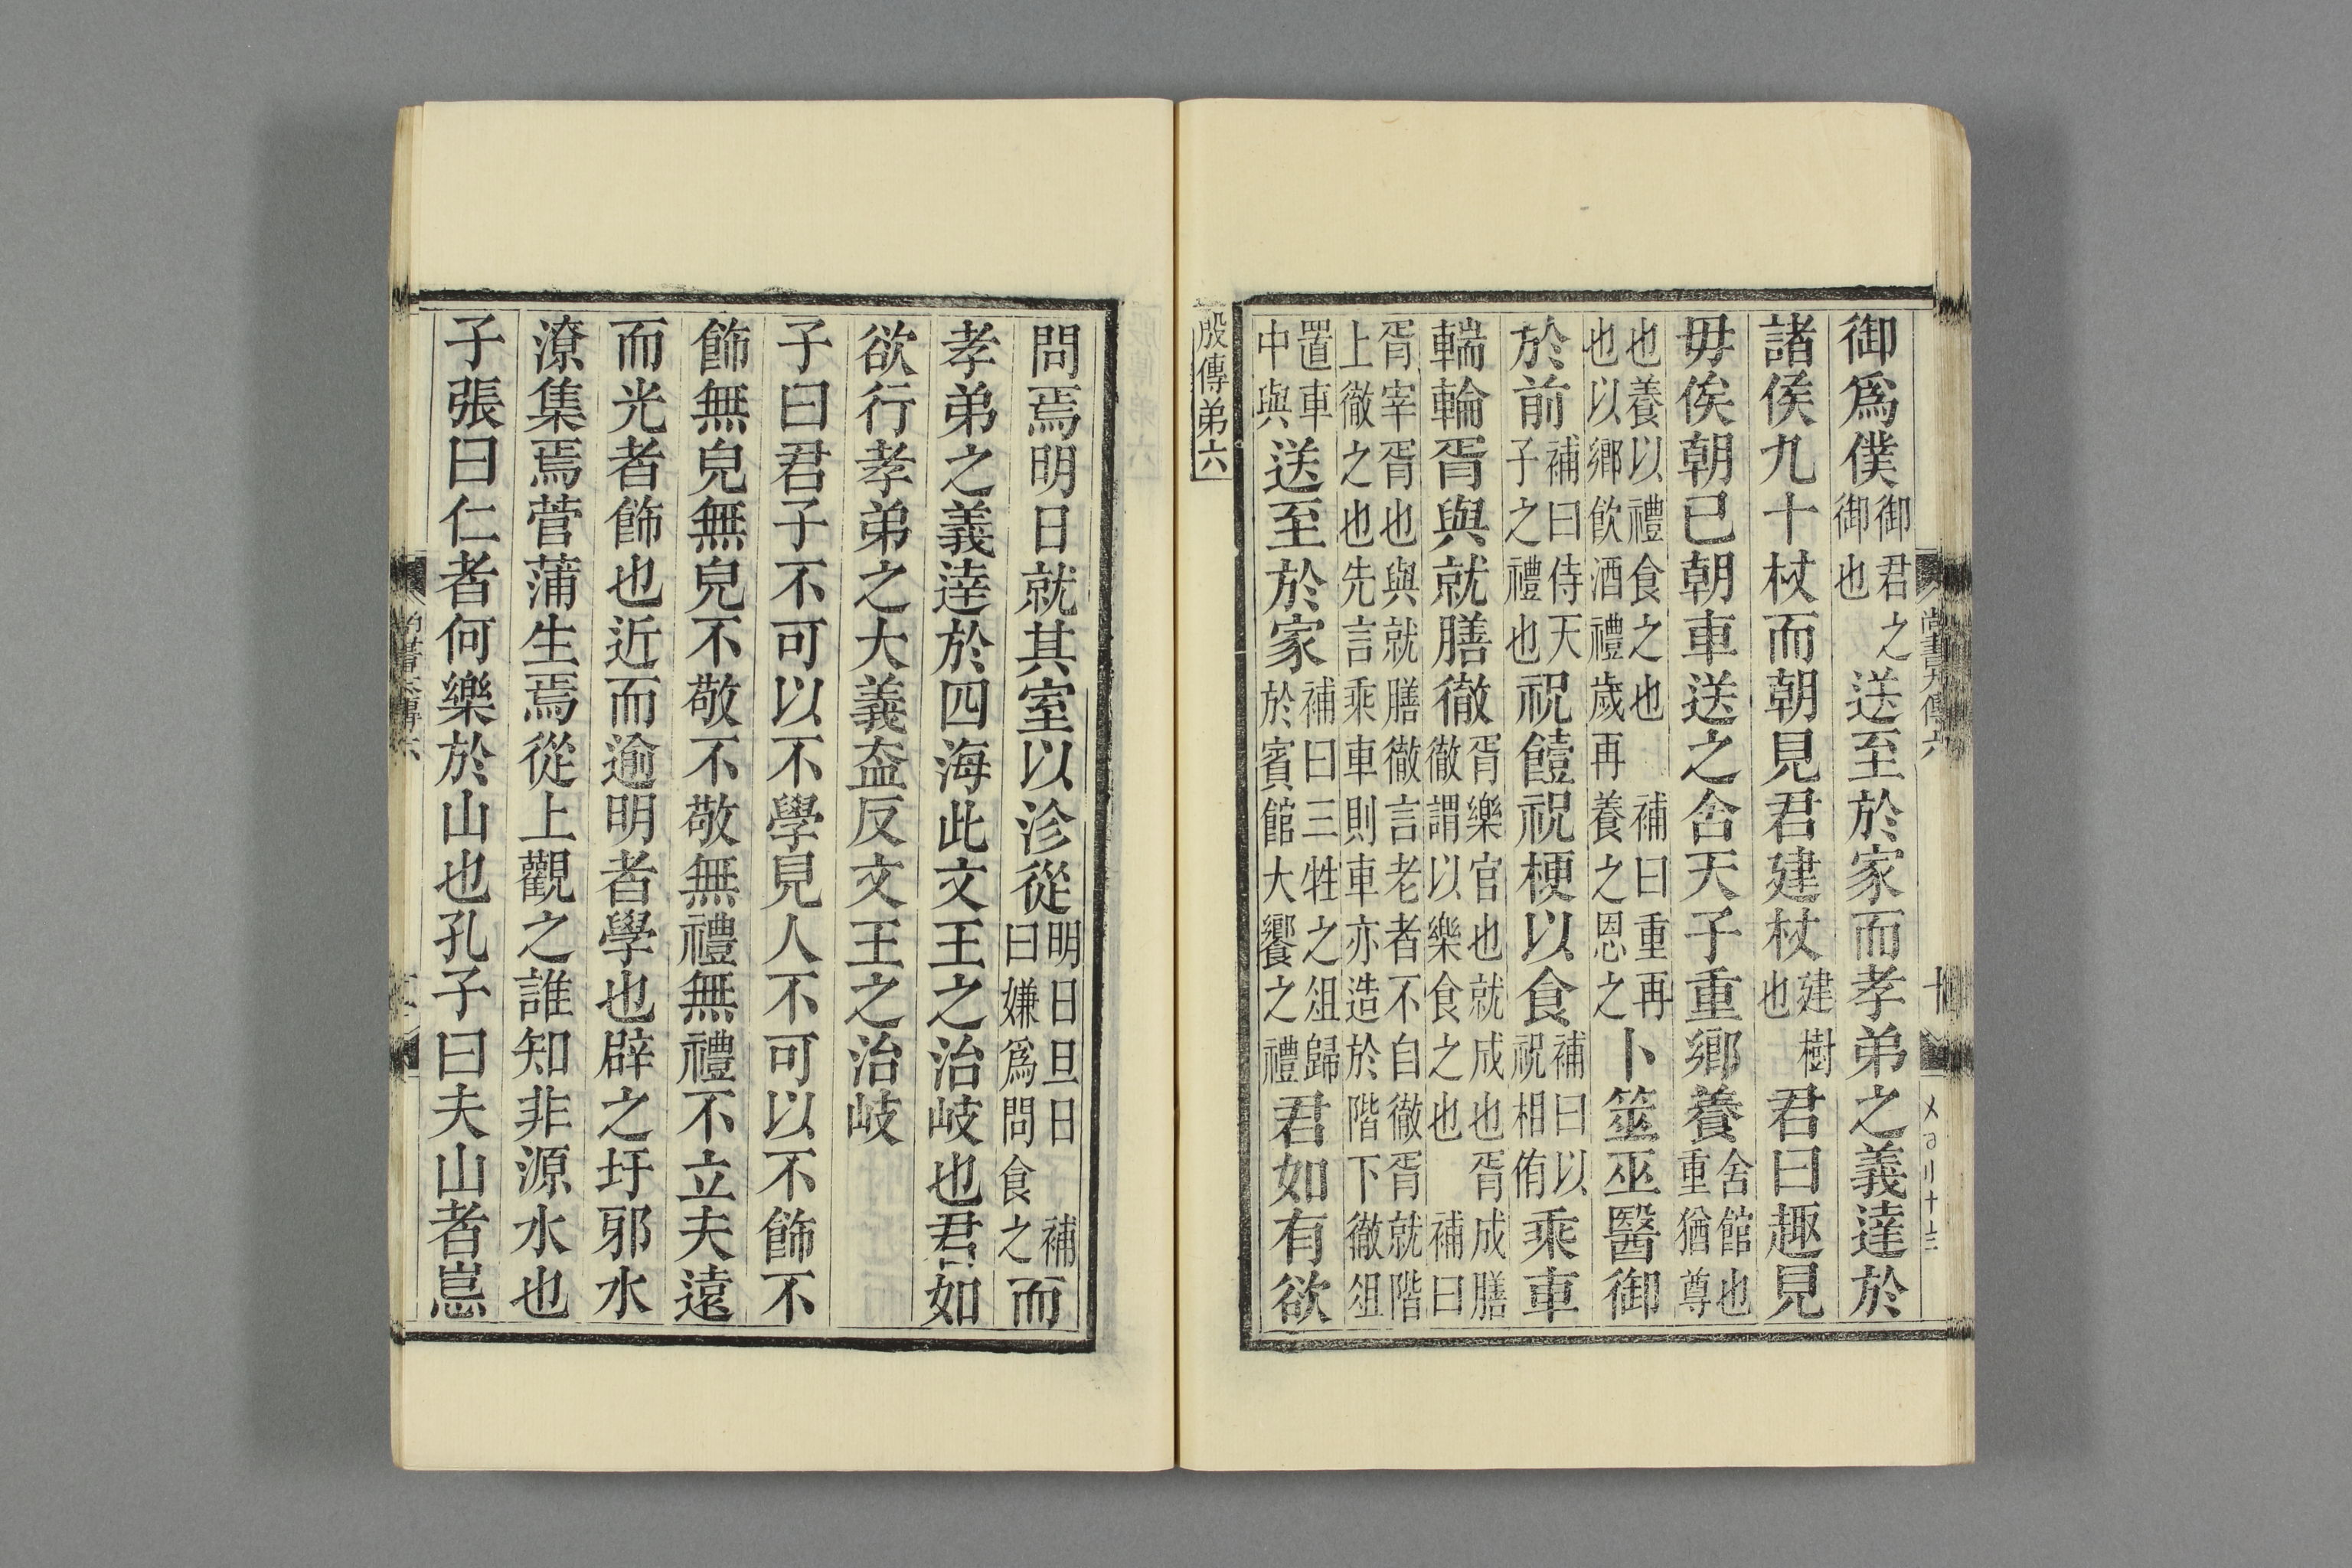 御爲僕御君之御也送至於家而孝弟之義達於
諸侯九十杖而朝見君建杖建樹也君曰趣見
毋俟朝已朝車送之舍天子重鄉養舍館也重猶尊
也養以禮食之也 補曰重再
也以鄉飲酒禮歲再養之恩之卜筮巫醫御
於前補曰侍天子之禮也祝饐祝梗以食補曰以祝相侑乘車
輲輪胥與就膳徹胥樂官也就成也胥成膳徹謂以樂食之也 補曰
胥宰胥也與就膳徹言老者不自徹胥就階
上徹之也先言乘車則車亦造於階下徹俎
置車中與送至於家補曰三牲之俎歸於賓館大饗之禮君如有欲
殷傳弟六
問焉明日就其室以沴從明日旦日 補曰嫌爲問食之而
孝弟之義達於四海此文王之治岐也君如
欲行孝弟之大義盇反文王之治岐
子曰君子不可以不學見人不可以不飾不
飾無皃無皃不敬不敬無禮無禮不立夫遠
而光者飾也近而逾明者學也辟之圩邪水
潦集焉菅蒲生焉從上觀之誰知非源水也
子張曰仁者何樂於山也孔子曰夫山者嵬